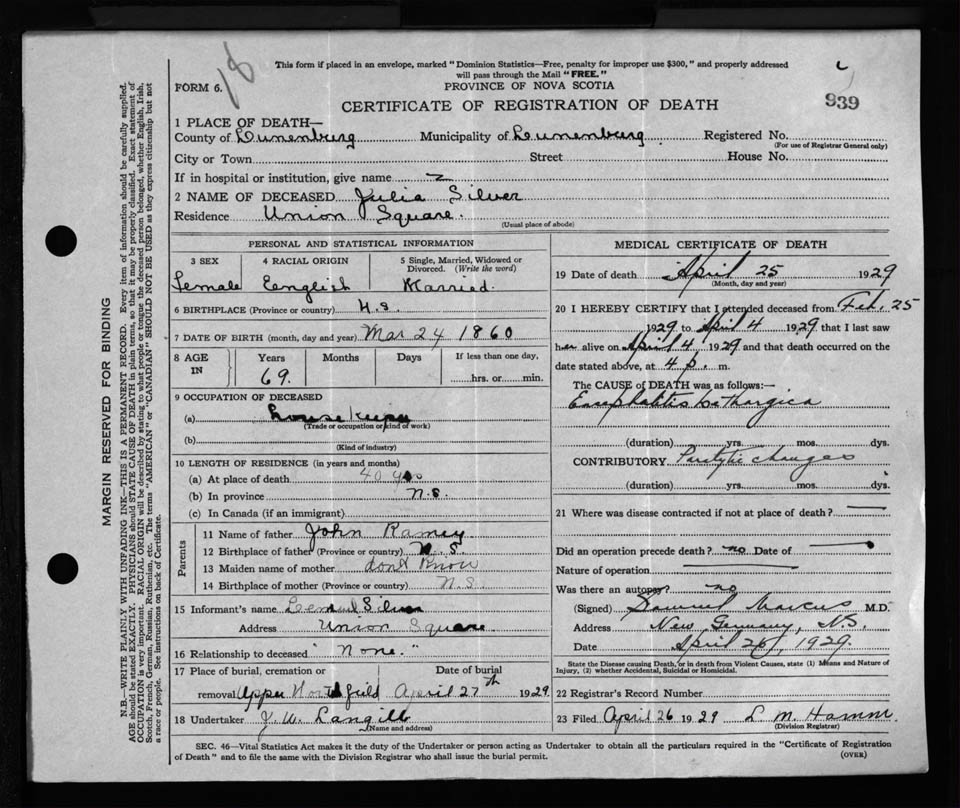 18
This form if placed in an envelope, marked "Dominion Statistics—Free, penalty for improper use $300," and properly addressed
will pass through the Mail "FREE."
FORM 6.
PROVINCE OF NOVA SCOTIA
939
CERTIFICATE OF REGISTRATION OF DEATH
1 PLACE OF DEATH—
County of Lunenburg Municipality of Lunenburg Registered No.
(For use of Registrar General only)
City or Town Street House No.
If in hospital or institution, give name
2 NAME OF DECEASED Julia Silver
Residence Union Square.
(Usual place of abode)
PERSONAL AND STATISTICAL INFORMATION
3 SEX 4 RACIAL ORIGIN 5 Single, Married, Widowed or Divorced. (Write the word)
Female English Married.
6 BIRTHPLACE (Province or country) N.S.
7 DATE OF BIRTH (month, day and year) Mar 24 1860
8 AGE IN Years Months Days If less than one day,
69. hrs. or min.
9 OCCUPATION OF DECEASED
(a) House
(Trade or occupation or kind of work)
(b)
(Kind of industry)
10 LENGTH OF RESIDENCE (in years and months)
(a) At place of death 40 yrs
(b) In province N.S.
(c) In Canada (if an immigrant)
Parents
11 Name of father John Ramey
12 Birthplace of father (Province or country) N.S.
13 Maiden name of mother dont Know
14 Birthplace of mother (Province or country) N.S
15 Informant's name Lemuel Silver
Address Union Square
16 Relationship to deceased "None."
17 Place of burial, cremation or Date of burial
removal Upper Northfield April 27th 1929
18 Undertaker J. W. Langill
(Name and address)
MEDICAL CERTIFICATE OF DEATH
19 Date of death April 25 1929
(Month, day and year)
20 I HEREBY CERTIFY that I attended deceased from Feb. 25
1929 to April 4 1929 that I last saw
her alive on April 4 1929 and that death occurred on the
date stated above, at 4 p. m.
The CAUSE of DEATH was as follows:—
Encephalitis Lethargica
(duration) yrs. mos. dys.
CONTRIBUTORY Paralytic changes
(duration) yrs. mos. dys.
21 Where was disease contracted if not at place of death? —
Did an operation precede death? no Date of —
Nature of operation —
Was there an autopsy? no
(Signed) Samuel Marcus M.D.
Address New Germany, N.S.
Date April 26, 1929
State the Disease causing Death, or in death from Violent Causes, state (1) Means and Nature of
Injury, (2) whether Accidental, Suicidal or Homicidal.
22 Registrar's Record Number
23 Filed April 26 1929 L M. Hamm
(Division Registrar)
SEC. 46—Vital Statistics Act makes it the duty of the Undertaker or person acting as Undertaker to obtain all the particulars required in the "Certificate of Registration
of Death" and to file the same with the Division Registrar who shall issue the burial permit.
(OVER)
MARGIN RESERVED FOR BINDING
N.B.—WRITE PLAINLY WITH UNFADING INK—THIS IS A PERMANENT RECORD. Every item of information should be carefully supplied.
AGE should be stated EXACTLY. PHYSICIANS should STATE CAUSE OF DEATH in plain terms, so that it may be properly classified. Exact statement of
OCCUPATION is very important. RACIAL ORIGIN will be described by stating to what people or tongue the deceased person belonged, whether English, Irish,
Scotch, French, German, Russian, Ruthenian, etc. The terms "AMERICAN" or "CANADIAN" SHOULD NOT BE USED as they express citizenship but not
a race or people. See instructions on back of Certificate.